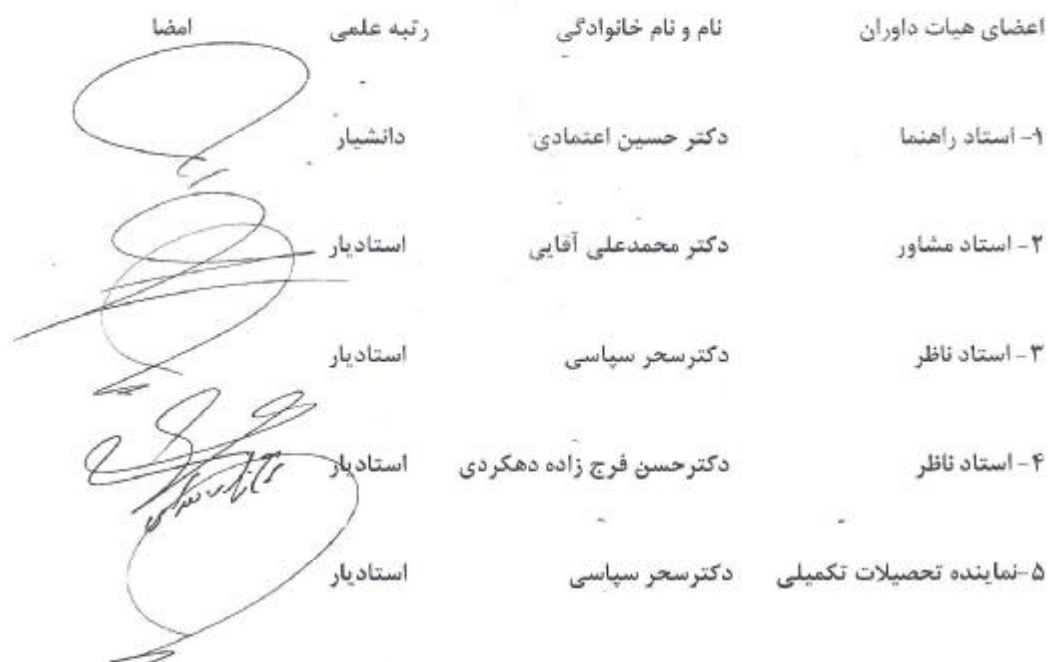 اعضای هیات داوران نام و نام خانوادگی رتبه علمی امضا
۱- استاد راهنما دکتر حسین اعتمادی دانشیار
۲- استاد مشاور دکتر محمدعلی آقایی استادیار
۳- استاد ناظر دکترسحر سپاسی استادیار
۴- استاد ناظر دکترحسن فرج زاده دهکردی استادیار
۵-نماینده تحصیلات تکمیلی دکترسحر سپاسی استادیار